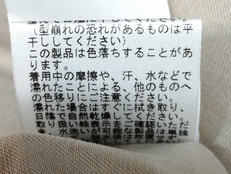 (型崩れの恐れがあるものは平
干ししてください)
この製品は色落ちすることがあ
ります。
着用中の摩擦や、汗、水などで
濡れたことによる、他のものへ
の色移りにご注意ください。
濡れた場合はすぐに拭き取り、
日陰で自然乾燥してください。